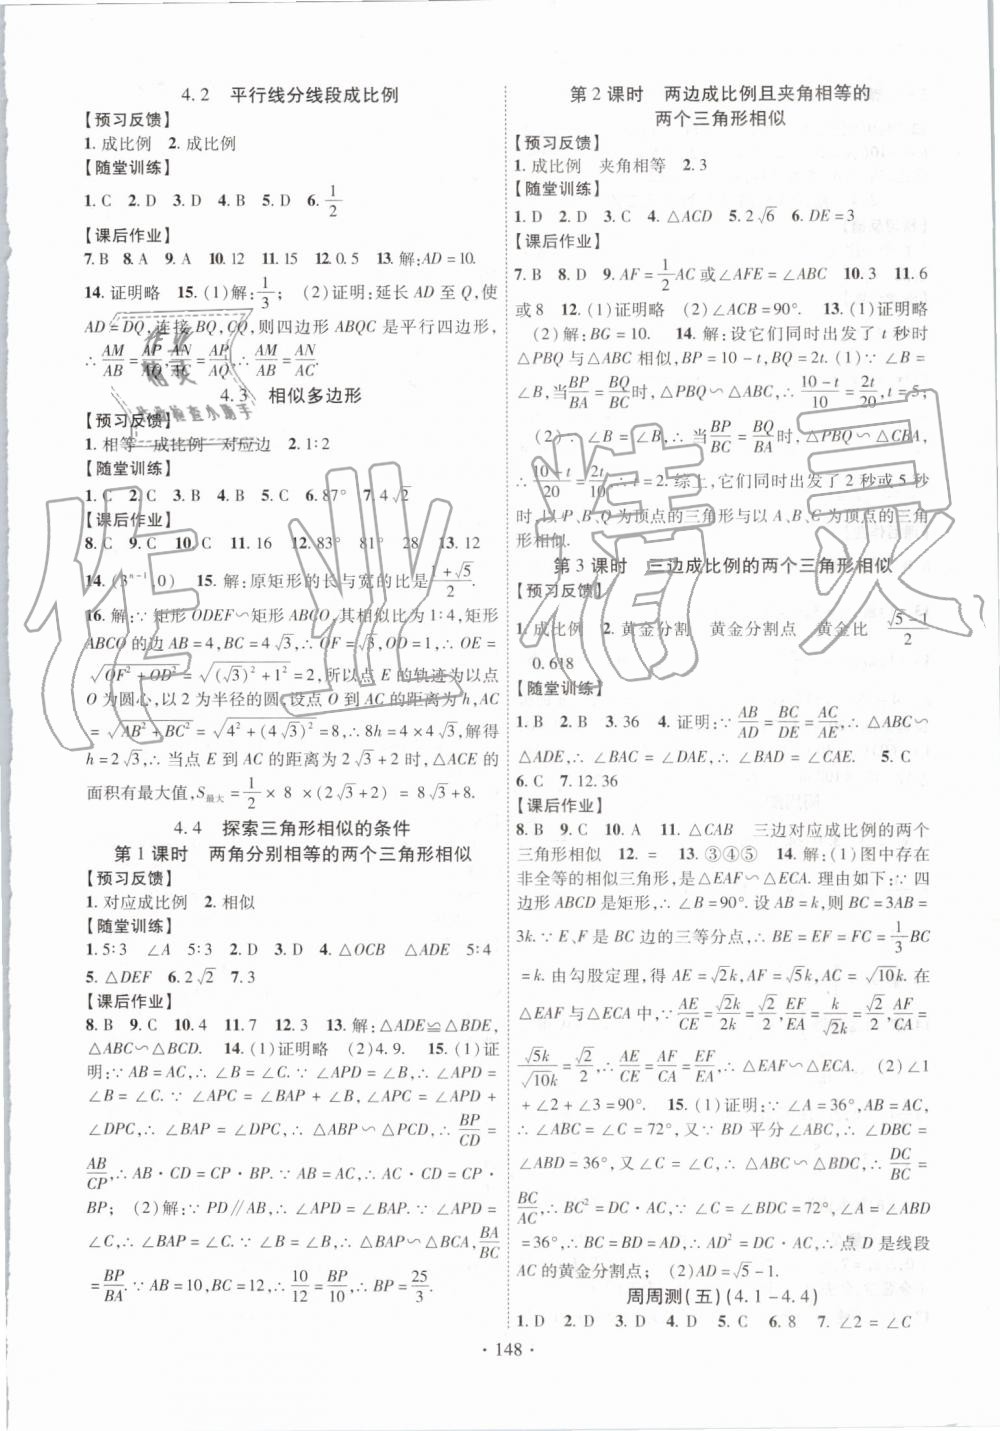 4.2 平行线分线段成比例
【预习反馈】
1. 成比例 2. 成比例
【随堂训练】
1. C 2. D 3. D 4. B 5. D 6. 1/2
【课后作业】
7. B 8. A 9. A 10. 12 11. 15 12. 0.5 13. 解:AD=10.
14. 证明略 15. (1)解:1/3; (2)证明:延长 AD 至 Q,使
AD=DQ,连接 BQ,CQ,则四边形 ABQC 是平行四边形,
∴AM/AB=AP/AQ,AN/AC=AP/AQ,∴AM/AB=AN/AC.
4.3 相似多边形
【预习反馈】
1. 相等 成比例 对应边 2. 1∶2
【随堂训练】
1. C 2. C 3. B 4. C 5. C 6. 87° 7. 4√2
【课后作业】
8. C 9. C 10. C 11. 16 12. 83° 81° 28 13. 12
14. (3ⁿ⁻¹,0) 15. 解:原矩形的长与宽的比是(1+√5)/2.
16. 解:∵矩形 ODEF∽矩形 ABCO,其相似比为 1∶4,矩形
ABCO 的边 AB=4,BC=4√3,∴OF=√3,OD=1,∴OE=
√(OF²+OD²)=√((√3)²+1²)=2,所以点 E 的轨迹为以点
O 为圆心,以 2 为半径的圆,设点 O 到 AC 的距离为 h,AC
=√(AB²+BC²)=√(4²+(4√3)²)=8,∴8h=4×4√3,解得
h=2√3,∴当点 E 到 AC 的距离为 2√3+2 时,△ACE 的
面积有最大值,S最大=1/2×8×(2√3+2)=8√3+8.
4.4 探索三角形相似的条件
第 1 课时 两角分别相等的两个三角形相似
【预习反馈】
1. 对应成比例 2. 相似
【随堂训练】
1. 5∶3 ∠A 5∶3 2. D 3. D 4. △OCB △ADE 5∶4
5. △DEF 6. 2√2 7. 3
【课后作业】
8. B 9. C 10. 4 11. 7 12. 3 13. 解:△ADE≌△BDE,
△ABC∽△BCD. 14. (1)证明略 (2)4.9. 15. (1)证
明:∵AB=AC,∴∠B=∠C. ∵∠APD=∠B,∴∠APD
=∠B=∠C. ∵∠APC=∠BAP+∠B,∠APC=∠APD+
∠DPC,∴∠BAP=∠DPC,∴△ABP∽△PCD,∴BP/CD=
AB/CP,∴AB·CD=CP·BP. ∵AB=AC,∴AC·CD=CP·
BP; (2)解:∵PD∥AB,∴∠APD=∠BAP. ∵∠APD=
∠C,∴∠BAP=∠C. ∵∠B=∠B,∴△BAP∽△BCA,BA/BC
=BP/BA. ∵AB=10,BC=12,∴10/12=BP/10,∴BP=25/3.
第 2 课时 两边成比例且夹角相等的
两个三角形相似
【预习反馈】
1. 成比例 夹角相等 2. 3
【随堂训练】
1. D 2. D 3. C 4. △ACD 5. 2√6 6. DE=3
【课后作业】
7. B 8. D 9. AF=1/2AC 或∠AFE=∠ABC 10. 3 11. 6
或8 12. (1)证明略 (2)∠ACB=90°. 13. (1)证明略
(2)解:BG=10. 14. 解:设它们同时出发了 t 秒时
△PBQ 与△ABC 相似,BP=10-t,BQ=2t. (1)∵∠B=
∠B,当BP/BA=BQ/BC时,△PBQ∽△ABC,∴(10-t)/10=2t/20,t=5;
(2)∵∠B=∠B,∴当BP/BC=BQ/BA时,△PBQ∽△CBA,
∴(10-t)/20=2t/10,∴t=2. 综上,它们同时出发了 2 秒或5秒
时,以 P、B、Q 为顶点的三角形与以 A、B、C 为顶点的三角
形相似.
第 3 课时 三边成比例的两个三角形相似
【预习反馈】
1. 成比例 2. 黄金分割 黄金分割点 黄金比 (√5-1)/2
0.618
【随堂训练】
1. B 2. B 3. 36 4. 证明:∵AB/AD=BC/DE=AC/AE,∴△ABC∽
△ADE,∴∠BAC=∠DAE,∴∠BAD=∠CAE. 5. C
6. C 7. 12.36
【课后作业】
8. B 9. C 10. A 11. △CAB 三边对应成比例的两个
三角形相似 12. = 13. ③④⑤ 14. 解:(1)图中存在
非全等的相似三角形,是△EAF∽△ECA. 理由如下:∵四
边形 ABCD 是矩形,∴∠B=90°. 设 AB=k,则 BC=3AB=
3k. ∵E、F 是 BC 边的三等分点,∴BE=EF=FC=1/3BC
=k. 由勾股定理,得 AE=√2k,AF=√5k,AC=√10k. 在
△EAF 与△ECA 中,∵AE/CE=√2k/2k=√2/2,EF/EA=k/√2k=√2/2,AF/CA=
√5k/√10k=√2/2,∴AE/CE=AF/CA=EF/EA,∴△EAF∽△ECA. (2)∠1
+∠2+∠3=90°. 15. (1)证明:∵∠A=36°,AB=AC,
∴∠ABC=∠C=72°,又∵BD 平分∠ABC,∴∠DBC=
∠ABD=36°,又∠C=∠C,∴△ABC∽△BDC,∴DC/BC=
BC/AC,∴BC²=DC·AC,∵∠C=∠BDC=72°,∠A=∠ABD
=36°,∴BC=BD=AD,∴AD²=DC·AC,∴点 D 是线段
AC 的黄金分割点; (2)AD=√5-1.
周周测(五)(4.1-4.4)
1. D 2. D 3. D 4. D 5. C 6. 8 7. ∠2=∠C
·148·
作业精灵
作业
精灵
作业检查小助手